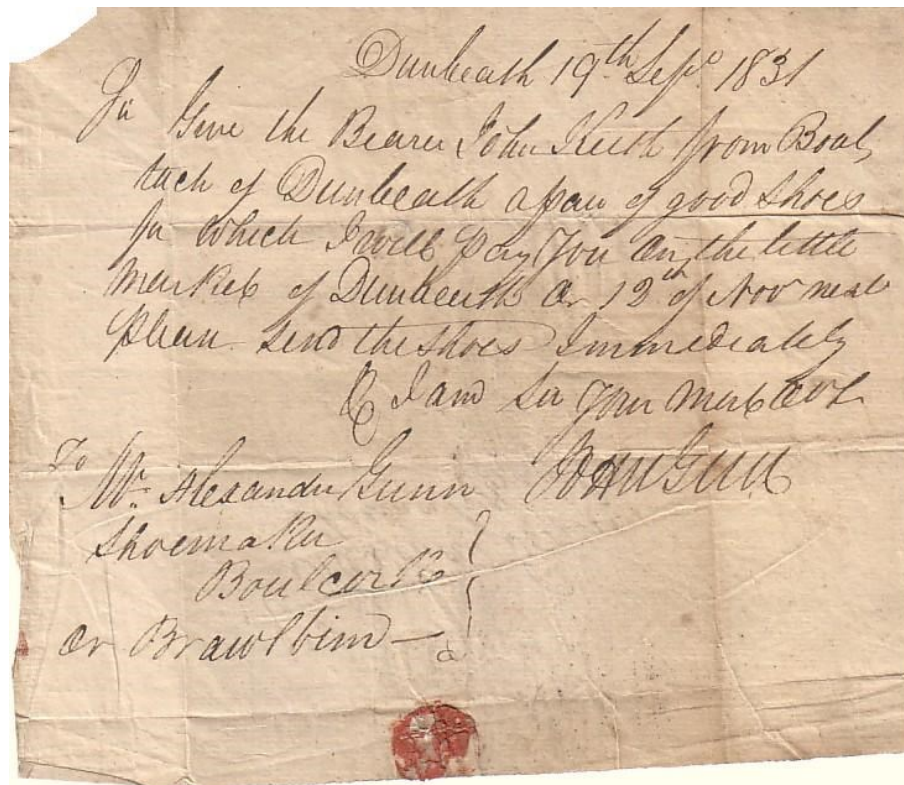 Dunbeath 19th Sepr 1831
Sir Give the Bearer John Keith from Boal
tach of Dunbeath a pair of good shoes
for which I will pay You on the little
Market of Dunbeath or 12th of Nov next
please send the shoes Immediately
& I am Sir your Most Obt
John Gunn
To
Mr. Alexander Gunn
Shoemaker
or Brawlbin